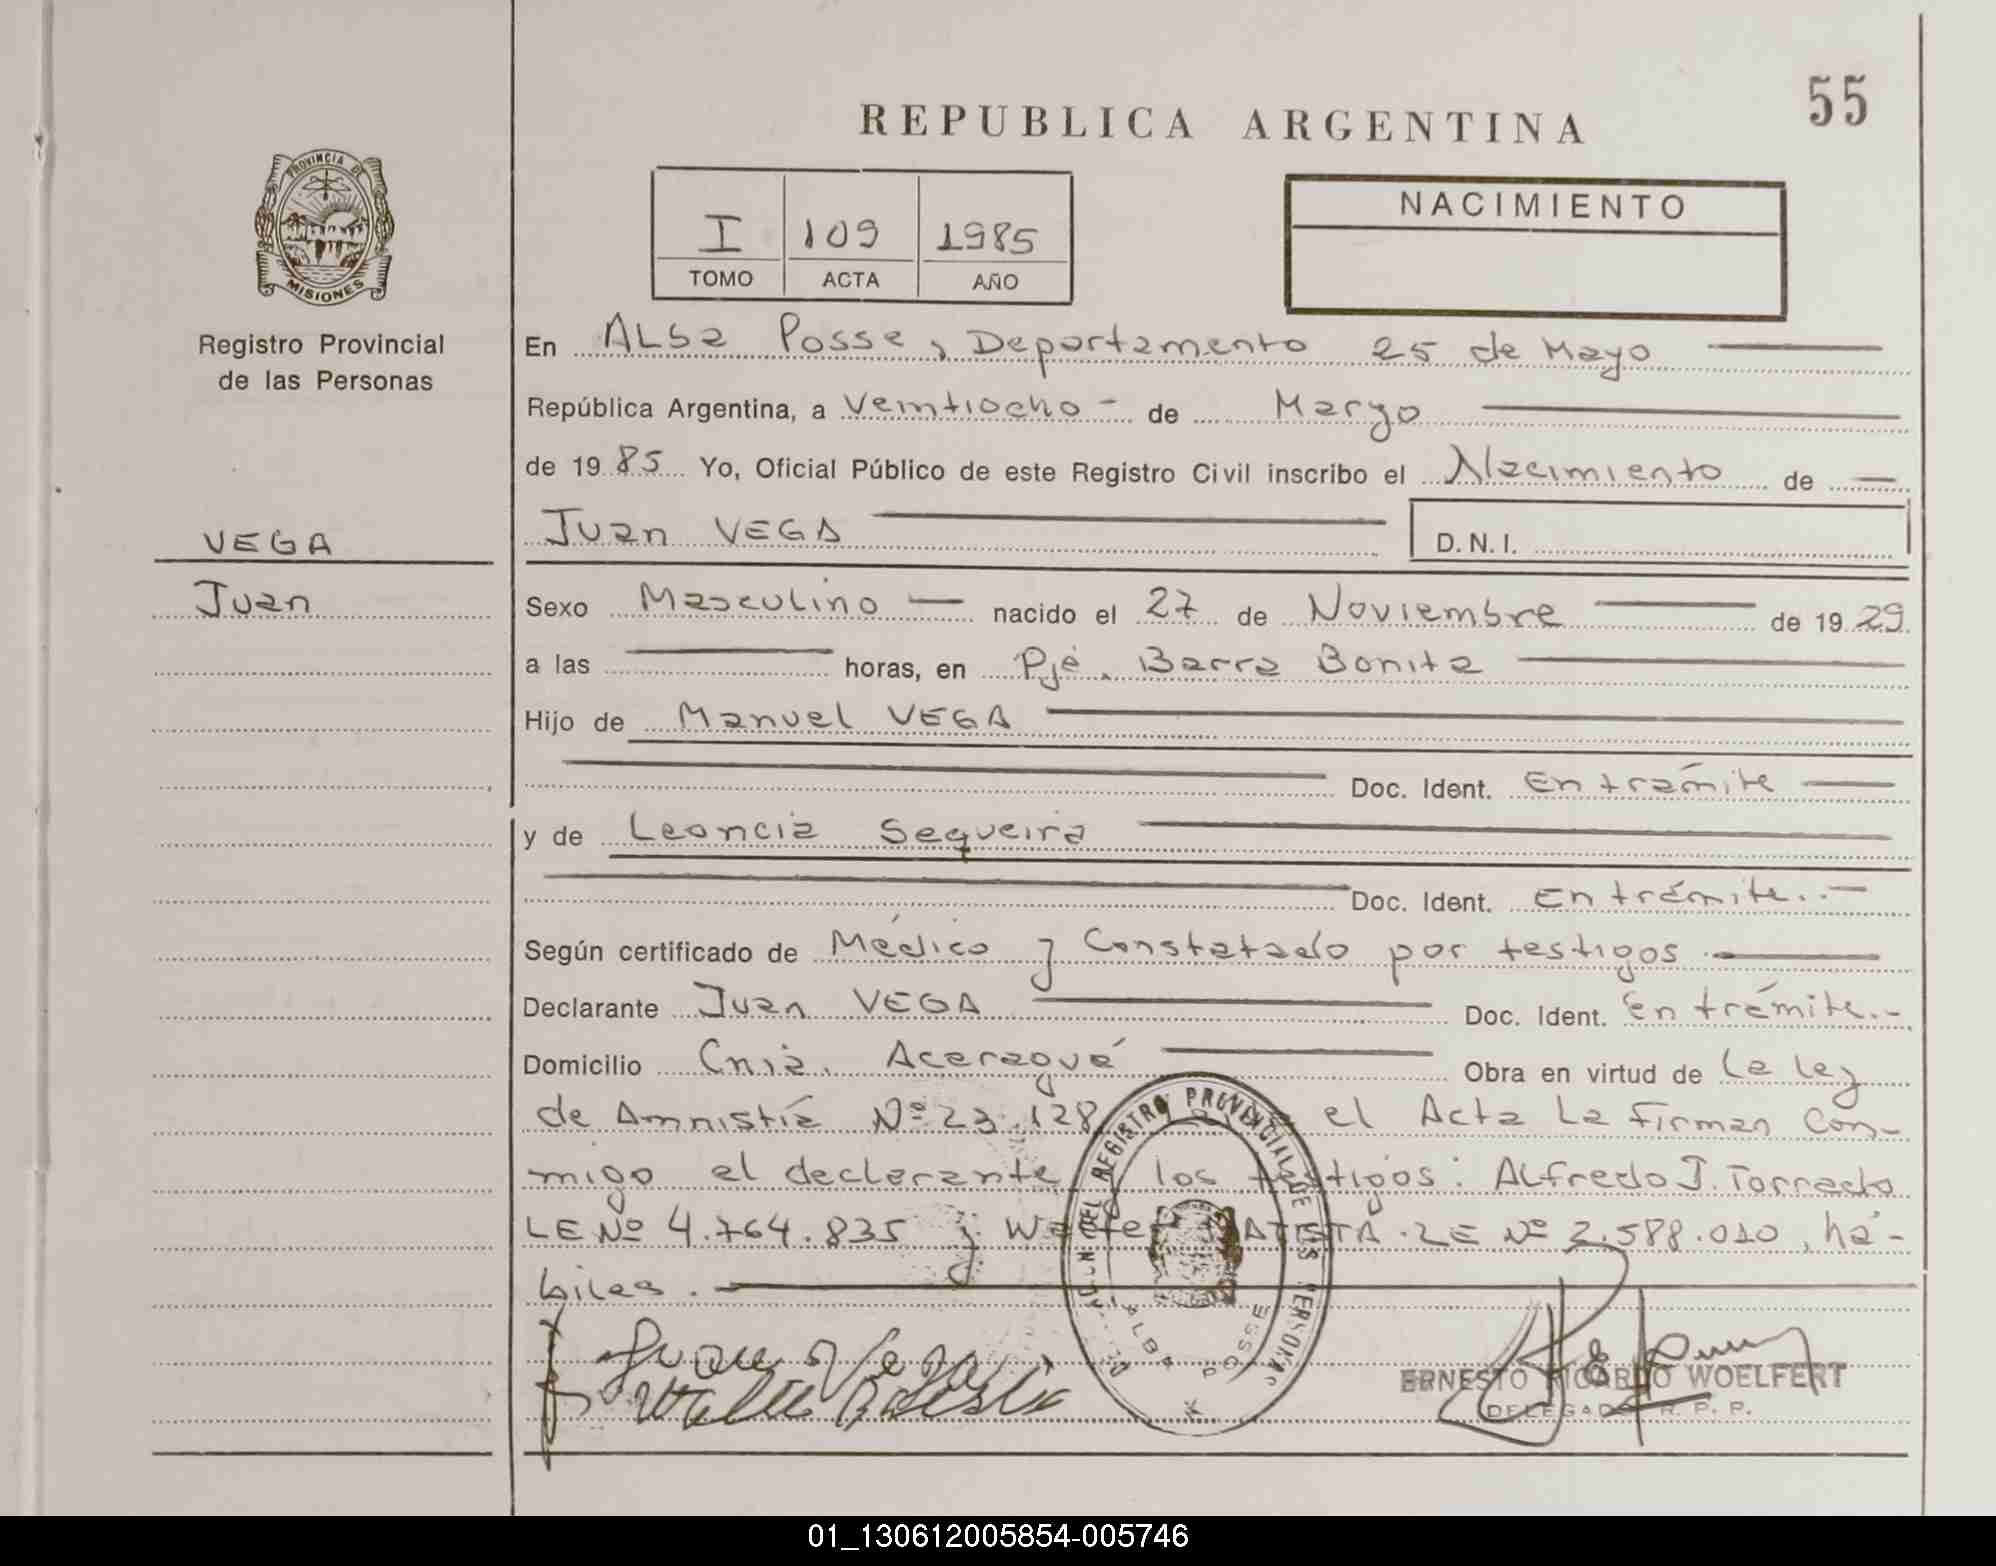 55
REPUBLICA ARGENTINA
PROVINCIA DE
MISIONES
Registro Provincial
de las Personas
I 109 1985
TOMO ACTA AÑO
NACIMIENTO
En Alba Posse, Departamento 25 de Mayo
República Argentina, a Veintiocho - de Marzo
de 1985 Yo, Oficial Público de este Registro Civil inscribo el Nacimiento de
VEGA
Juan
Juan VEGA D.N.I.
Sexo Masculino nacido el 27 de Noviembre de 1929
a las horas, en Pje. Barra Bonita
Hijo de Manuel VEGA
Doc. Ident. En trámite
y de Leoncia Sequeira
Doc. Ident. En trámite.-
Según certificado de Médico y Constatado por testigos
Declarante Juan VEGA Doc. Ident. En trámite.-
Domicilio Cnia. Acaragué Obra en virtud de la ley
de Amnistía Nº 23.128 el Acta la firman con-
migo el declarante los testigos: Alfredo J. Torrado
LE Nº 4.764.835 y LE Nº 2.588.010, há-
biles.
DEL REGISTRO PROVINCIAL DE LAS PERSONAS
ALBA POSSE
Juan Vega
ERNESTO RICARDO WOELFERT
DELEGADO R. P. P.
01_130612005854-005746